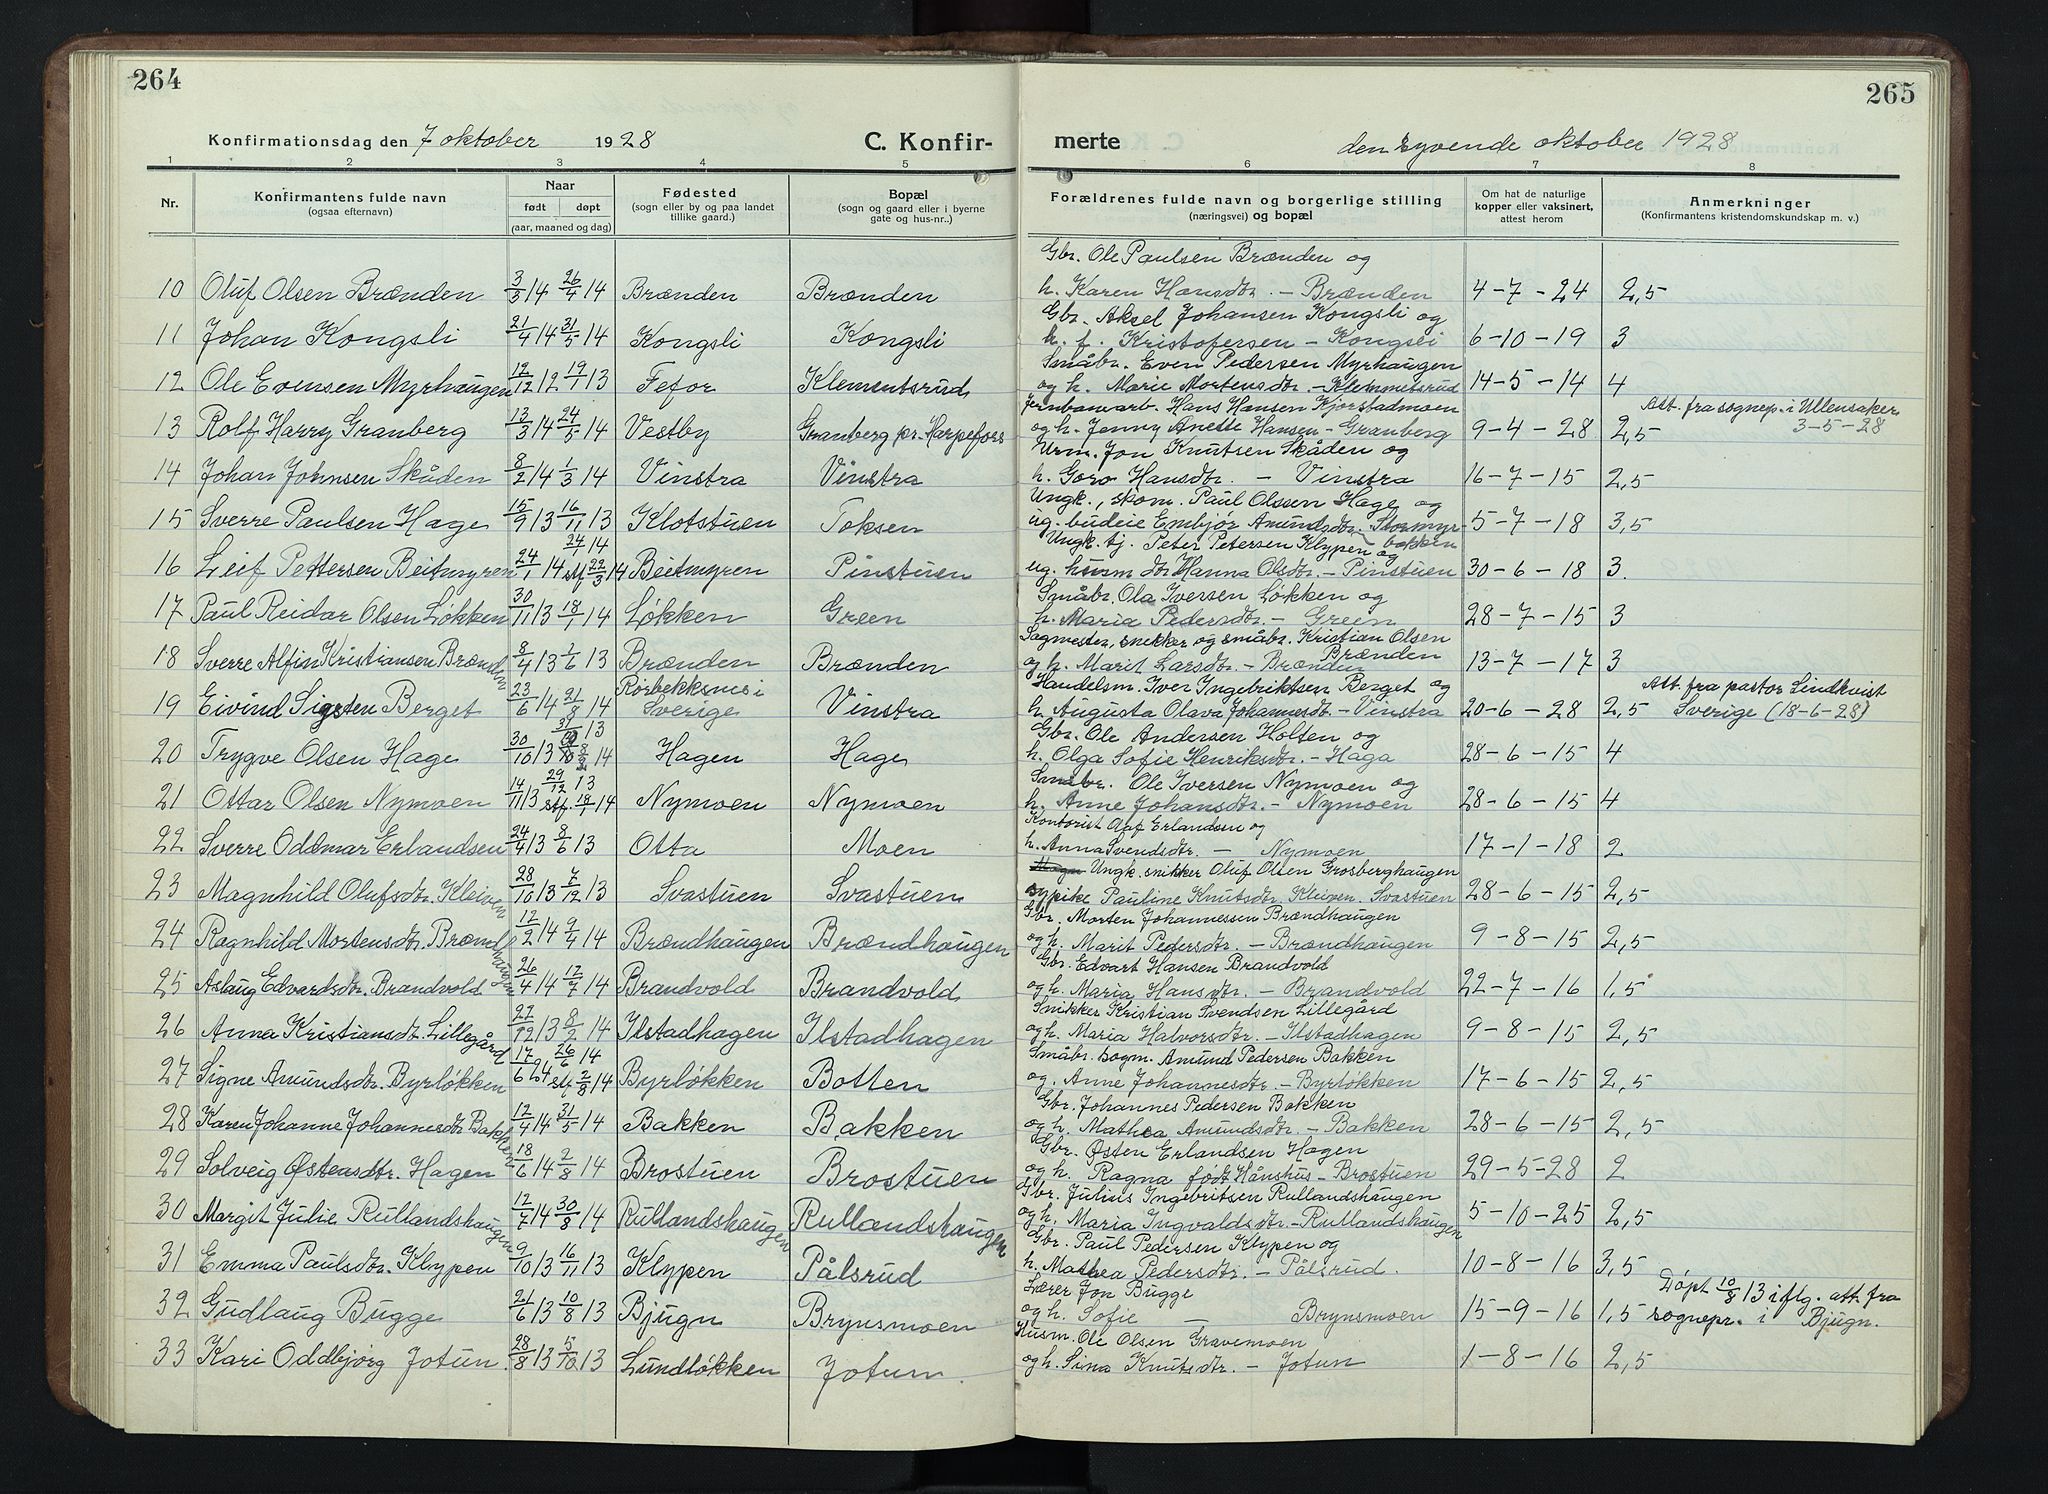 264
Konfirmationsdag den 7 oktober 1928
C. Konfir-
1 2 3 4 5
Nr.
Konfirmantens fulde navn
(ogsaa efternavn)
Naar
født døpt
(aar, maaned og dag)
Fødested
(sogn eller by og paa landet
tillike gaard.)
Bopæl
(sogn og gaard eller i byerne
gate og hus-nr..)
10 Oluf Olsen Brænden 3/3 14 26/4 14 Brænden Brænden
11 Johan Kongsli 21/4 14 31/5 14 Kongsli Kongsli
12 Ole Evensen Myrhaugen 12/12 12 19/1 13 Fefor Klementsrud
13 Rolf Harry Granberg 13/3 14 24/5 14 Vestby Granberg pr. Harpefoss
14 Johan Johnsen Skåden 8/2 14 1/3 14 Vinstra Vinstra
15 Sverre Paulsen Hage 15/9 13 16/11 13 Klotstuen Toksen
24/1 14
16 Leif Pettersen Beitmyren 24/1 14 stf 22/3 14 Beitmyren Pinstuen
17 Paul Reidar Olsen Løkken 30/11 13 18/1 14 Løkken Green
18 Sverre Alfin Kristiansen Brænden 8/4 13 1/6 13 Brænden Brænden
Rörbekksnes i
19 Eivind Sigsten Berget 23/6 14 21/8 14 Sverige Vinstra
20 Trygve Olsen Hage 30/10 13 8/2 14 Hagen Hage
29/12 13
21 Ottar Olsen Nymoen 14/11 13 stf. 14 Nymoen Nymoen
22 Sverre Oddmar Erlandsen 24/4 13 8/6 13 Otta Moen
23 Magnhild Olufsdtr. Kleiven 28/10 13 7/12 13 Svastuen Svastuen
24 Ragnhild Mortensdtr. Brændhaugen 12/2 14 9/4 14 Brændhaugen Brændhaugen
25 Aslaug Edvardsdtr. Brandvold 26/4 14 12/7 14 Brandvold Brandvold
26 Anna Kristiansdtr. Lillegård 22/12 13 8/2 14 Ilstadhagen Ilstadhagen
26/6 14
27 Signe Amundsdtr. Byrløkken 17/6 14 stf 2/8 14 Byrløkken Botten
28 Karen Johanne Johannesdtr Bakken 12/4 14 31/5 14 Bakken Bakken
29 Solveig Østensdtr. Hagen 18/6 14 2/8 14 Brostuen Brostuen
30 Margit Julie Rullandshaugen 12/7 14 30/8 14 Rullandshaugen Rullandshaugen
31 Emma Paulsdtr. Klypen 9/10 13 16/11 13 Klypen Pålsrud
32 Gudlaug Bugge 21/6 13 10/8 13 Bjugn Brynsmoen
33 Kari Oddbjørg Jotun. 28/8 13 5/10 13 Lundløkken Jotun.
265
merte
den syvende oktober 1928
6 7 8
Forældrenes fulde navn og borgerlige stilling
(næringsvei) og bopæl
Om hat de naturlige
kopper eller vaksinert,
attest herom
Anmerkninger
(Konfirmantens kristendomskundskap m. v.)
Gbr. Ole Paulsen Brænden og
h. Karen Hansdtr. - Brænden 4-7-24 2,5
Gbr. Aksel Johansen Kongsli og
h. f. Kristofersen - Kongsli 6-10-19 3
Småbr. Even Pedersen Myrhaugen
og h. Marie Mortensdtr. - Klemmetsrud 14-5-14 4
Jernbanearb. Hans Hansen Kjorstadmoen Att. fra sognep. i Ullensaker
og h. Jenny Anette Hansen - Granberg 9-4-28 2,5 3-5-28
Urm. Jon Knutsen Skåden og
h. Goro Hansdtr. - Vinstra 16-7-15 2,5
Ungk., skom. Paul Olssen Hage og
ug. budeie Embjør Amundsdtr. Stormyr- 5-7-18 3,5
bakken
Ungk. tj. Peter Petersen Klypen og
ug. husm dtr Hanna Olsdtr. - Pinstuen 30-6-18 3.
Småbr. Ola Iversen Løkken og
h. Maria Pedersdtr. - Green 28-7-15 3
Sagmester, snekker og småbr. Kristian Olsen
Brænden
og h. Marit Larsdtr. - Brænden 13-7-17 3
Handelsm. Iver Ingebriktsen Berget og Att. fra pastor Lindkvist
h. Augusta Olava Johannesdtr. - Vinstra 20-6-28 2,5 Sverige (18-6-28)
Gbr. Ole Andersen Holten og
h. Olga Sofie Henriksdtr. - Haga 28-6-15 4
Småbr. Ole Iversen Nymoen og
h. Anne Johansdtr. - Nymoen 28-6-15 4
Kontorist Erlandsen og
h. Anna Svendsdtr. - Nymoen 17-1-18 2
Ungk. snikker Oluf Olsen Grosberghaugen
sypike Pauline Knutsdtr. Kleiven - Svastuen 28-6-15 2,5
Gbr. Morten Johannessen Brændhaugen
og h. Marit Pedersdtr. - Brændhaugen 9-8-15 2,5
Gbr. Edvart Hansen Brandvold
og h. Maria Hansdtr. - Brandvold 22-7-16 1,5
Snikker Kristian Svendsen Lillegård
og h. Maria Halvorsdtr. - Ilstadhagen 9-8-15 2,5
Småbr. Amund Pedersen Bakken
og. Anne Johannesdtr. - Byrløkken 17-6-15 2,5
Gbr. Johannes Pedersen Bakken
og h. Mathea Amundsdtr. - Bakken 28-6-15 2,5
Gbr. Østen Erlandsen Hagen
og h. Ragna født Hånshus - Brostuen 29-5-28 2
Gbr. Julius Ingebritsen Rullandshaugen
og h. Maria Ingvaldsdtr. - Rullandshaugen 5-10-25 2,5
Gbr. Paul Pedersen Klypen og
h. Mathea Pedersdtr. - Pålsrud. 10-8-16 3,5
Lærer Jon Bugge Døpt 10/8 13 iflg. att. fra
og h. Sofie - Brynsmoen 15-9-16 1,5 sognepr. i Bjugn.
Husm. Ole Olsen Gravemoen
og h. Sina Knutsdtr. - Jotun 1-8-16 2,5